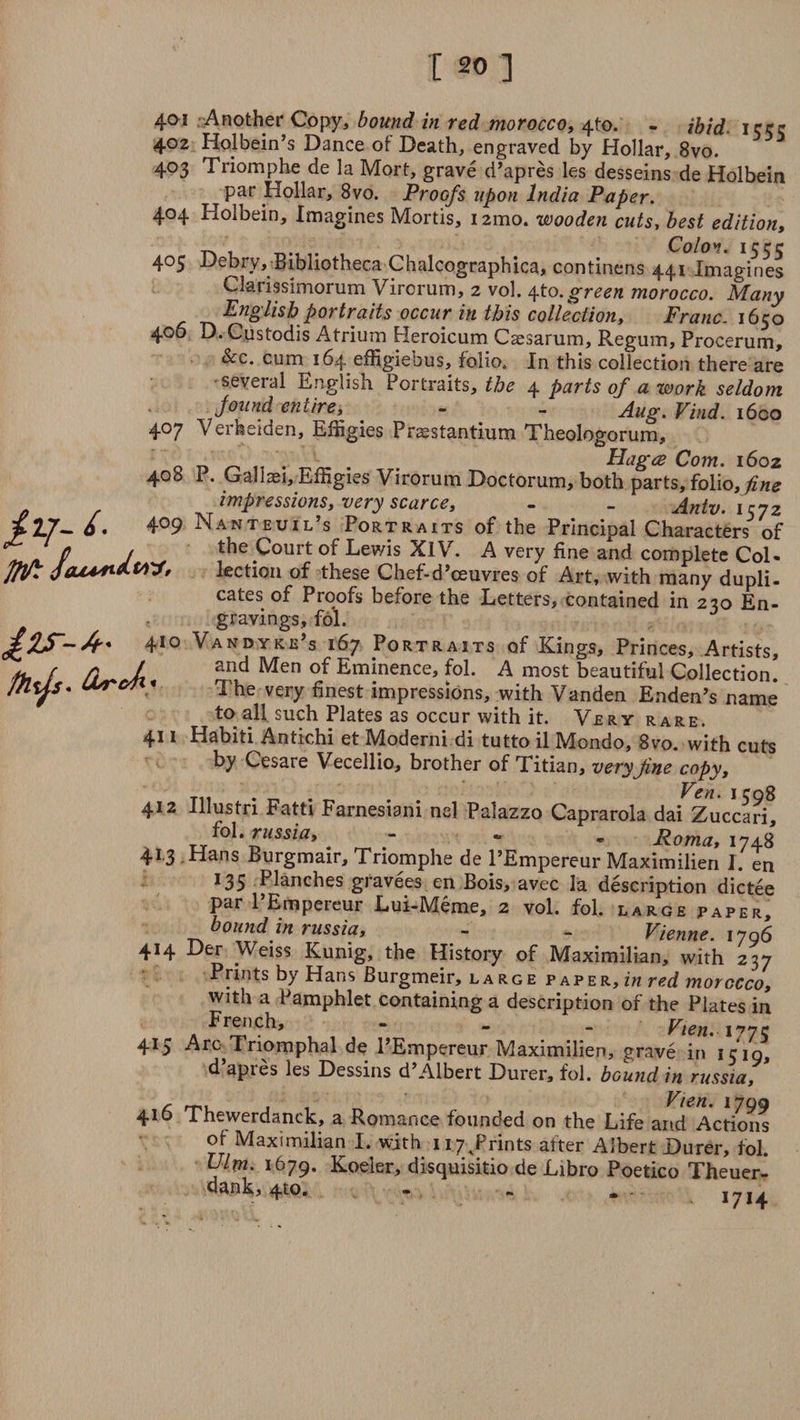 [ 20 ]
401 Another Copy, bound in red morocco, 4to. - ibid. 1555
402 Holbein's Dance of Death, engraved by Hollar, 8vo.
403 Triomphe de la Mort, gravé d'après les desseins de Holbein
par Hollar, 8vo. Proofs upon India Paper.
404 Holbein, Imagines Mortis, 12mo. wooden cuts, best edition,
Colon. 1555
405 Debry, Bibliotheca Chalcographica, continens 441 Imagines
Clarissimorum Virorum, 2 vol. 4to. green morocco. Many
English portraits occur in this collection, Franc. 1650
406 D. Custodis Atrium Heroicum Cæsarum, Regum, Procerum,
&c. cum 164 effigiebus, folio. In this collection there are
several English Portraits, the 4 parts of a work seldom
found entire, - - Aug. Vind. 1600
407 Verheiden, Effigies Præstantium Theologorum,
Hagæ Com. 1602
408 P. Gallæi, Effigies Virorum Doctorum, both parts, folio, fine
impressions, very scarce, - - Antv. 1572
£27-6. 409 NANTEUIL's PORTRAITS of the Principal Characters of
Mr Saunders, the Court of Lewis XIV. A very fine and complete Col-
lection of these Chef-d'œuvres of Art, with many dupli-
cates of Proofs before the Letters, contained in 230 En-
gravings, fol.
£25-4. 410 VANDYKE's 167 PORTRAITS of Kings, Princes, Artists,
and Men of Eminence, fol. A most beautiful Collection.
Messs. Archs. The very finest impressions, with Vanden Enden's name
to all such Plates as occur with it. VERY RARE.
411 Habiti Antichi et Moderni di tutto il Mondo, 8vo. with cuts
by Cesare Vecellio, brother of Titian, very fine copy,
Ven. 1598
412 Illustri Fatti Farnesiani nel Palazzo Caprarola dai Zuccari,
fol. russia, - - - Roma, 1748
413 Hans Burgmair, Triomphe de l'Empereur Maximilien I. en
135 Planches gravées en Bois, avec la déscription dictée
par l'Empereur Lui-Méme, 2 vol. fol. LARGE PAPER,
bound in russia, - - Vienne. 1796
414 Der Weiss Kunig, the History of Maximilian, with 237
Prints by Hans Burgmeir, LARGE PAPER, in red morocco,
with a Pamphlet containing a description of the Plates in
French, - - - Vien. 1775
415 Arc Triomphal de l'Empereur Maximilien, gravé in 1519,
d'après les Dessins d'Albert Durer, fol. bound in russia,
Vien. 1799
416 Thewerdanck, a Romance founded on the Life and Actions
of Maximilian I. with 117 Prints after Albert Durer, fol.
Ulm. 1679. Koeler, disquisitio de Libro Poetico Theuer-
dank, 4to. - - - 1714